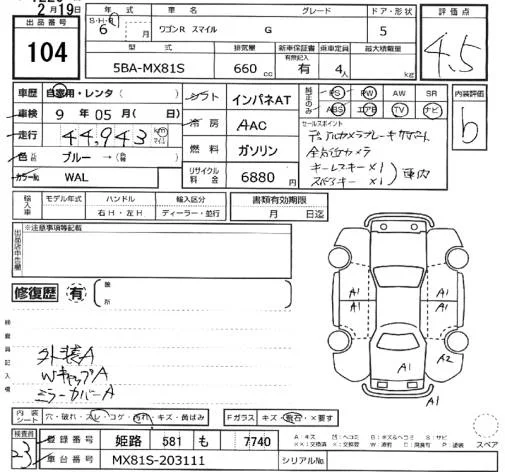 2月19日
出品番号
104
年式 車名 グレード ドア・形状 評価点
S・H・R
6 月 ワゴンR スマイル G 5
4.5
型式 排気量 新車保証書 有無記入 乗車定員 最大積載量
5BA-MX81S 660 cc 有 4人 kg
車歴 自家用・レンタ( ) シフト インパネAT
PS PW AW SR 内装評価
ABS エアB TV ナビ
b
車検 9年05月( 日) 冷房 AAC
セールスポイント
デュアルカメラブレーキサポート
全方位カメラ
走行 44,943 km マイル
燃料 ガソリン
キーレスキー×1
スペアキー×1 車内
色 ブルー→( )
カラーNo. WAL
リサイクル料金 6880円
輸入車 モデル年式 ハンドル 輸入区分 書類有効期限
年 右H・左H ディーラー・並行 月 日迄
※注意事項等記載
出品店申告欄
修復歴 有 箇所
A1
A1 A1 A1 A1
A2
A1
A1
検査員記入欄
外装A
WキャップA
ミラーカバーA
内装シート 穴・破れ・スレ・コゲ・汚れ・キズ・黄ばみ Fガラス キズ・飛石・×要す
検査員
23
登録番号 姫路 581 も 7740
車台番号 MX81S-203111 シリアルNo.
A:キズ U:ヘコミ B:キズ&ヘコミ S:サビ
スペア